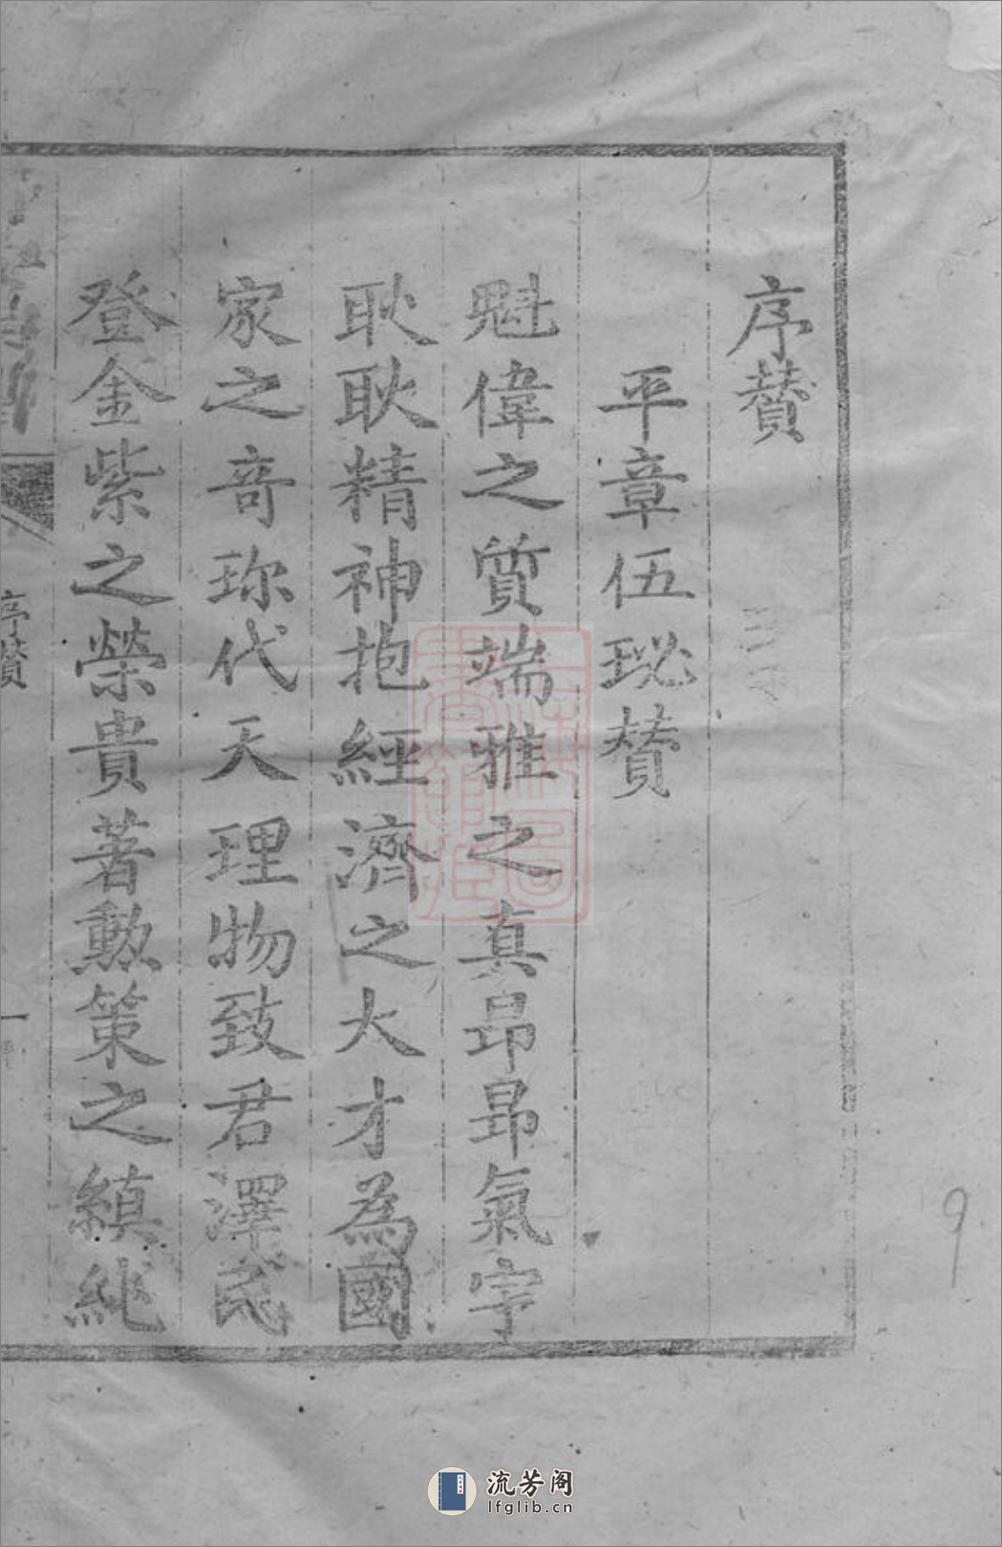 序賛
平章伍珌賛
魁偉之質端雅之真昂昂氣宇
耿耿精神抱經濟之大才為國
家之竒珎代天理物致君澤民
登金紫之榮貴著勲策之縝紕
序賛
一
9
流芳阁
lfglib.cn